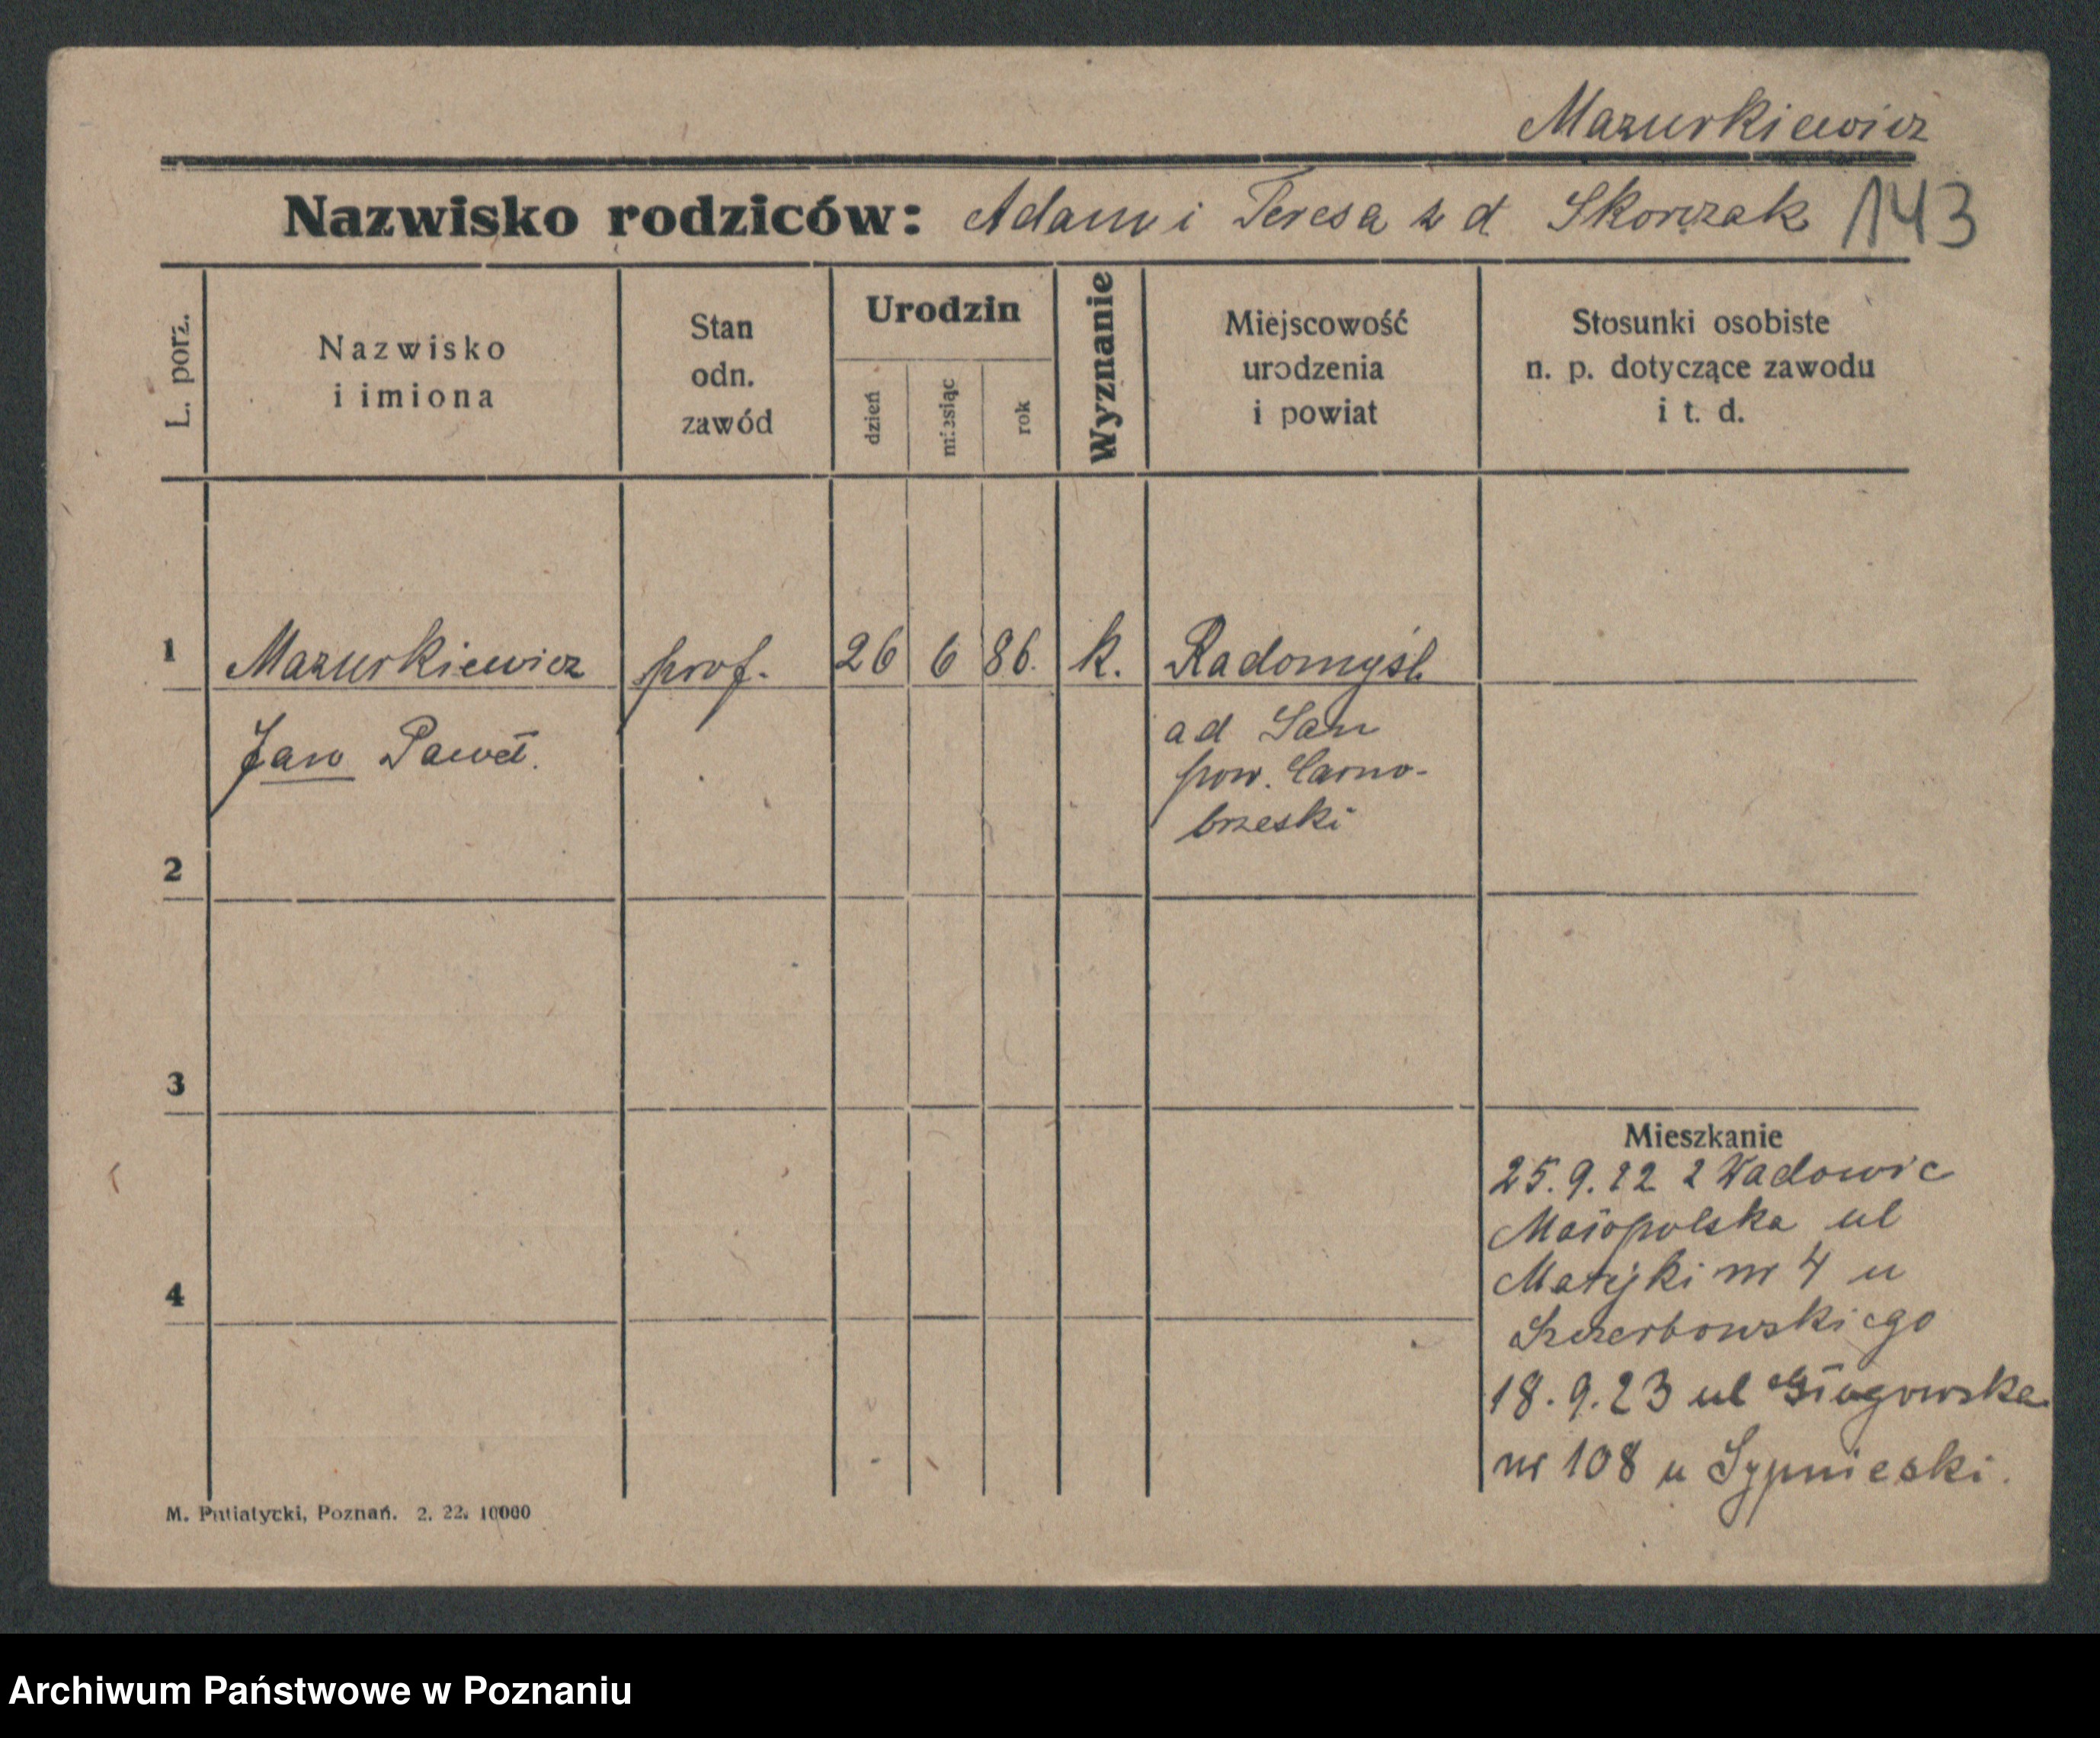 Mazurkiewicz
Nazwisko rodziców: Adam i Teresa z d Skorczak 143
L. porz.
Nazwisko
i imiona
Stan
odn.
zawód
Urodzin
dzień
miesiąc
rok
Wyznanie
Miejscowość
urodzenia
i powiat
Stosunki osobiste
n. p. dotyczące zawodu
i t. d.
1 Mazurkiewicz prof. 26 6 86. k. Radomyśl
Jan Paweł.
ad San
pow. Tarno-
brzeski
2
3
4
Mieszkanie
25.9.22 z Wadowic
Małopolska ul
Matejki nr 4 u
Szczerbowskiego
18.9.23 ul Głogowska
nr 108 u Sypnieski.
M. Putiatycki, Poznań. 2. 22. 10000
Archiwum Państwowe w Poznaniu